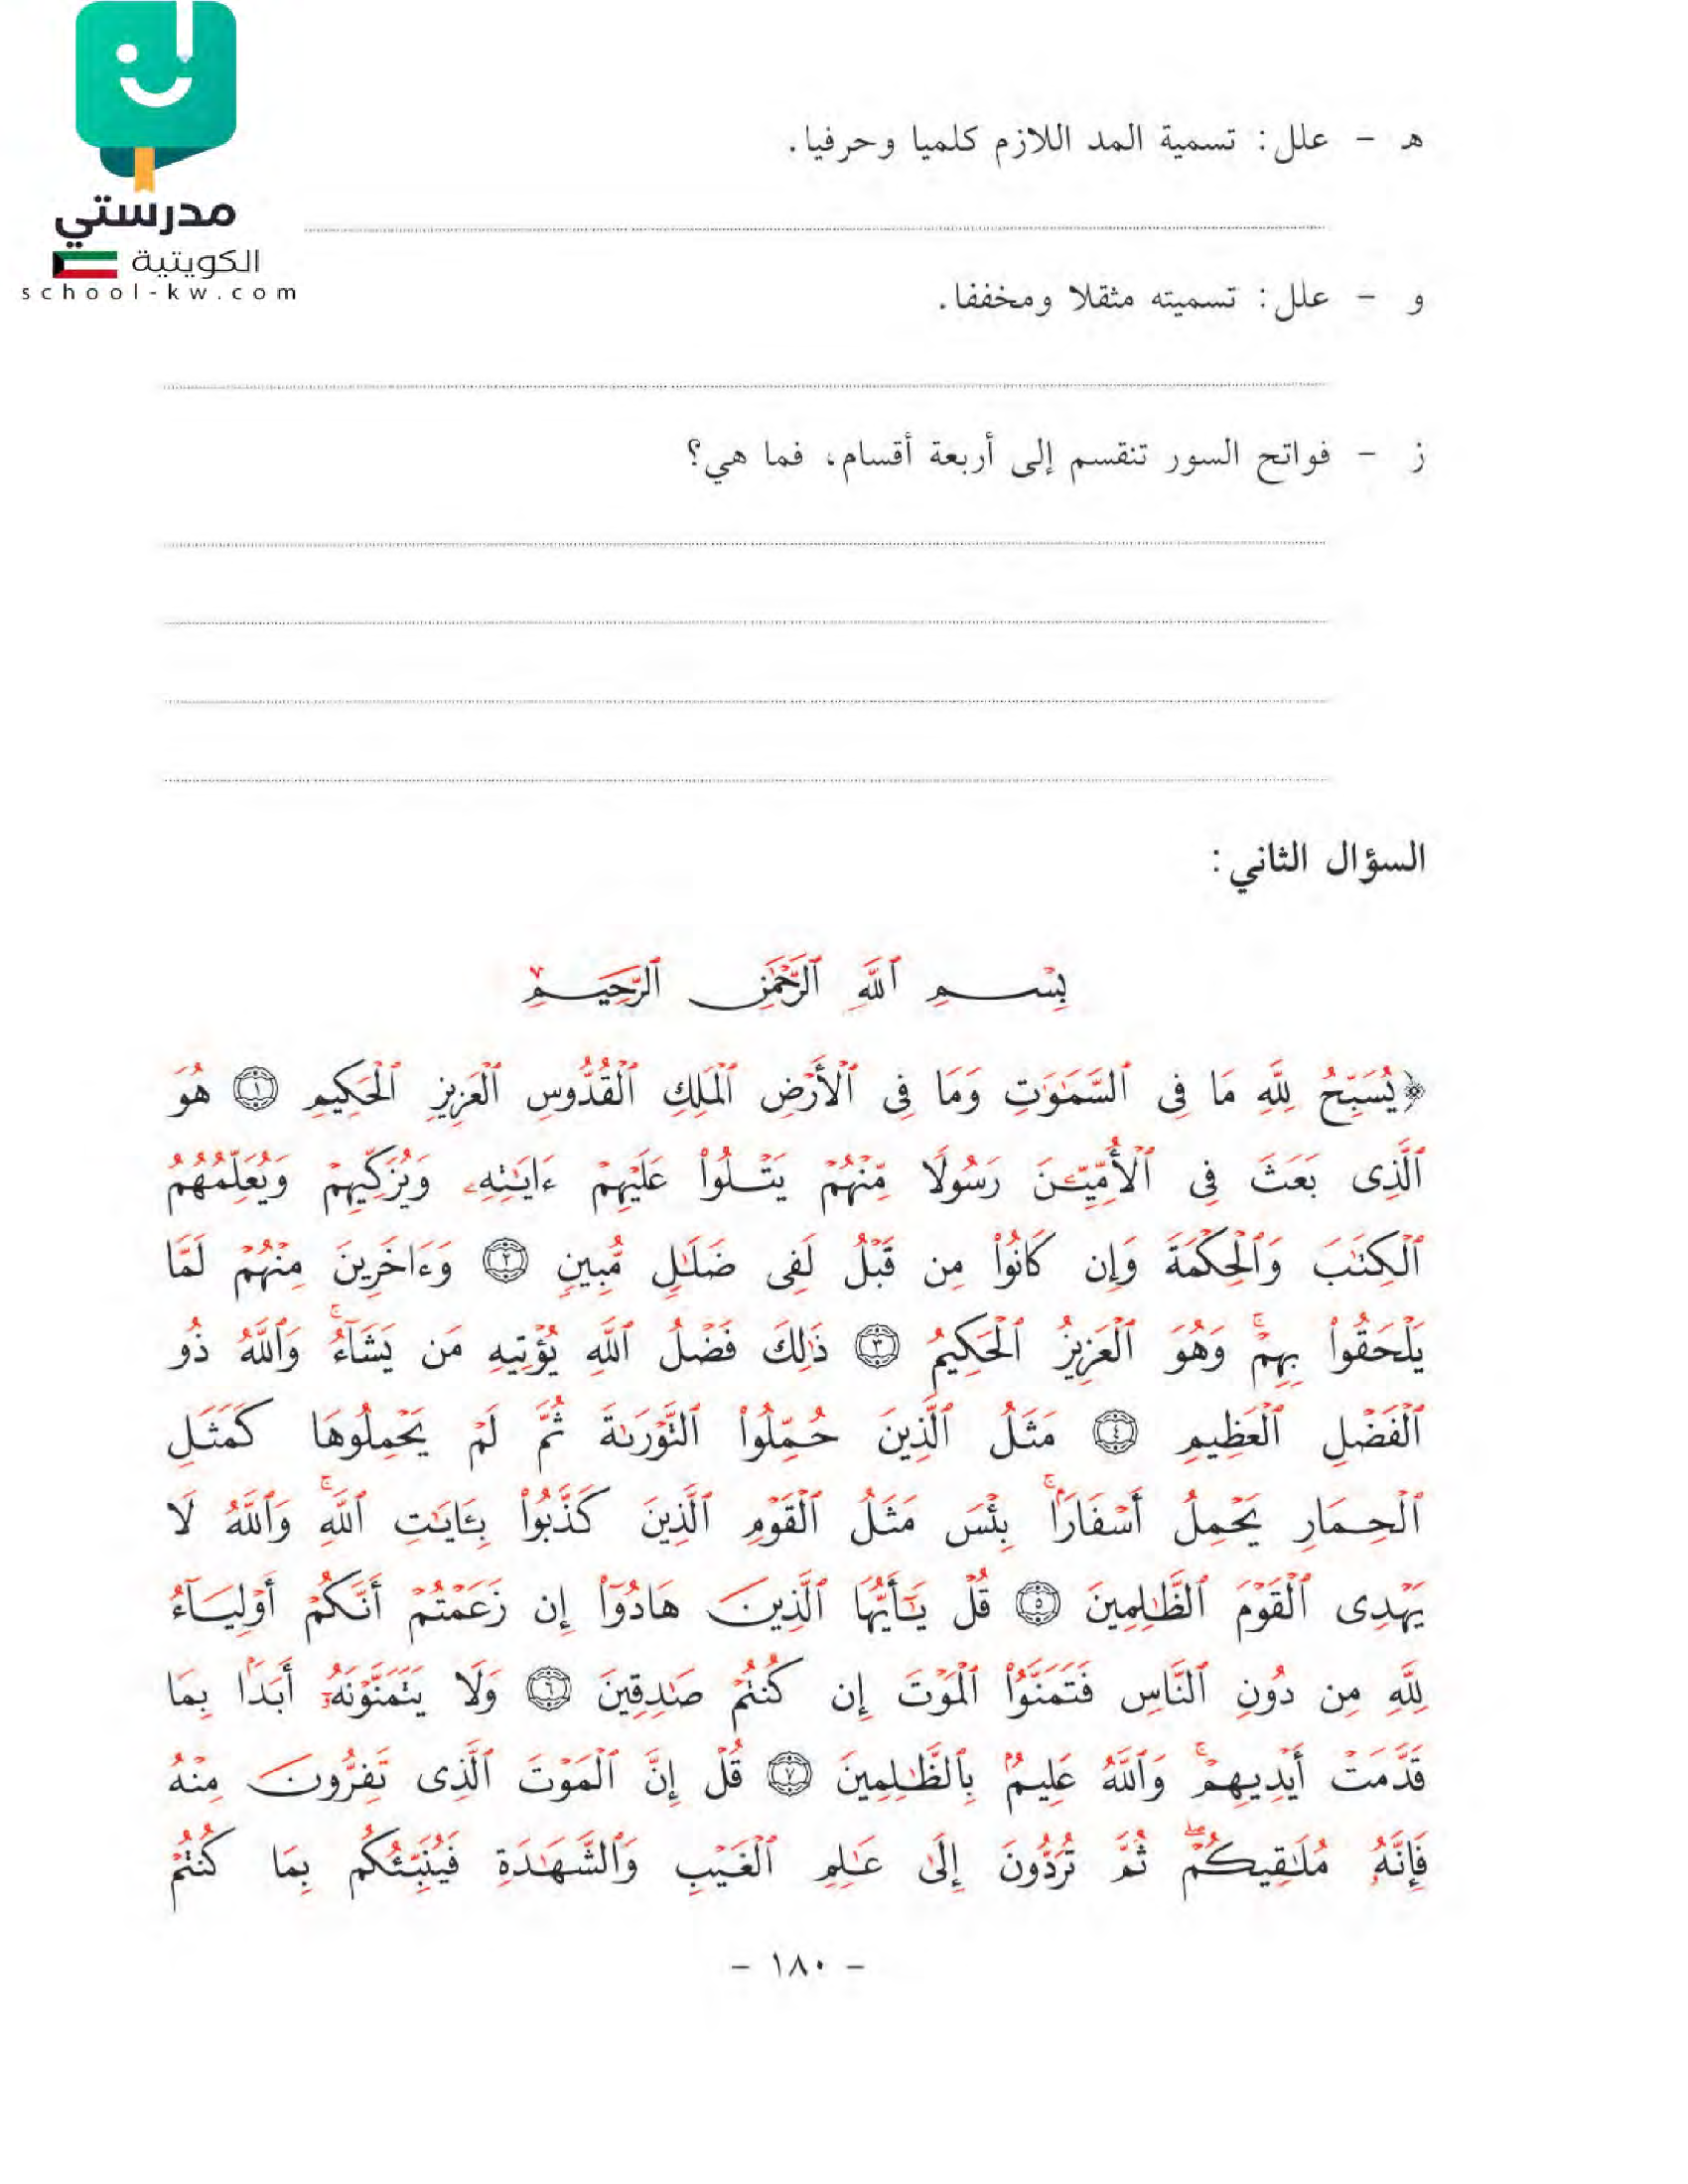 مدرستي
الكويتية
school-kw.com
هـ - علل: تسمية المد اللازم كلميا وحرفيا.
و - علل: تسميته مثقلا ومخففا.
ز - فواتح السور تنقسم إلى أربعة أقسام، فما هي؟
السؤال الثاني:
بِسْمِ ٱللَّهِ ٱلرَّحْمَٰنِ ٱلرَّحِيمِ
﴿يُسَبِّحُ لِلَّهِ مَا فِى ٱلسَّمَٰوَٰتِ وَمَا فِى ٱلْأَرْضِ ٱلْمَلِكِ ٱلْقُدُّوسِ ٱلْعَزِيزِ ٱلْحَكِيمِ ١ هُوَ
ٱلَّذِى بَعَثَ فِى ٱلْأُمِّيِّـۧنَ رَسُولًا مِّنْهُمْ يَتْلُوا۟ عَلَيْهِمْ ءَايَٰتِهِۦ وَيُزَكِّيهِمْ وَيُعَلِّمُهُمُ
ٱلْكِتَٰبَ وَٱلْحِكْمَةَ وَإِن كَانُوا۟ مِن قَبْلُ لَفِى ضَلَٰلٍ مُّبِينٍ ٢ وَءَاخَرِينَ مِنْهُمْ لَمَّا
يَلْحَقُوا۟ بِهِمْ ۚ وَهُوَ ٱلْعَزِيزُ ٱلْحَكِيمُ ٣ ذَٰلِكَ فَضْلُ ٱللَّهِ يُؤْتِيهِ مَن يَشَآءُ ۚ وَٱللَّهُ ذُو
ٱلْفَضْلِ ٱلْعَظِيمِ ٤ مَثَلُ ٱلَّذِينَ حُمِّلُوا۟ ٱلتَّوْرَىٰةَ ثُمَّ لَمْ يَحْمِلُوهَا كَمَثَلِ
ٱلْحِمَارِ يَحْمِلُ أَسْفَارًۢا ۚ بِئْسَ مَثَلُ ٱلْقَوْمِ ٱلَّذِينَ كَذَّبُوا۟ بِـَٔايَٰتِ ٱللَّهِ ۚ وَٱللَّهُ لَا
يَهْدِى ٱلْقَوْمَ ٱلظَّٰلِمِينَ ٥ قُلْ يَٰٓأَيُّهَا ٱلَّذِينَ هَادُوٓا۟ إِن زَعَمْتُمْ أَنَّكُمْ أَوْلِيَآءُ
لِلَّهِ مِن دُونِ ٱلنَّاسِ فَتَمَنَّوُا۟ ٱلْمَوْتَ إِن كُنتُمْ صَٰدِقِينَ ٦ وَلَا يَتَمَنَّوْنَهُۥٓ أَبَدًۢا بِمَا
قَدَّمَتْ أَيْدِيهِمْ ۚ وَٱللَّهُ عَلِيمٌۢ بِٱلظَّٰلِمِينَ ٧ قُلْ إِنَّ ٱلْمَوْتَ ٱلَّذِى تَفِرُّونَ مِنْهُ
فَإِنَّهُۥ مُلَٰقِيكُمْ ۖ ثُمَّ تُرَدُّونَ إِلَىٰ عَٰلِمِ ٱلْغَيْبِ وَٱلشَّهَٰدَةِ فَيُنَبِّئُكُم بِمَا كُنتُمْ
- ١٨٠ -